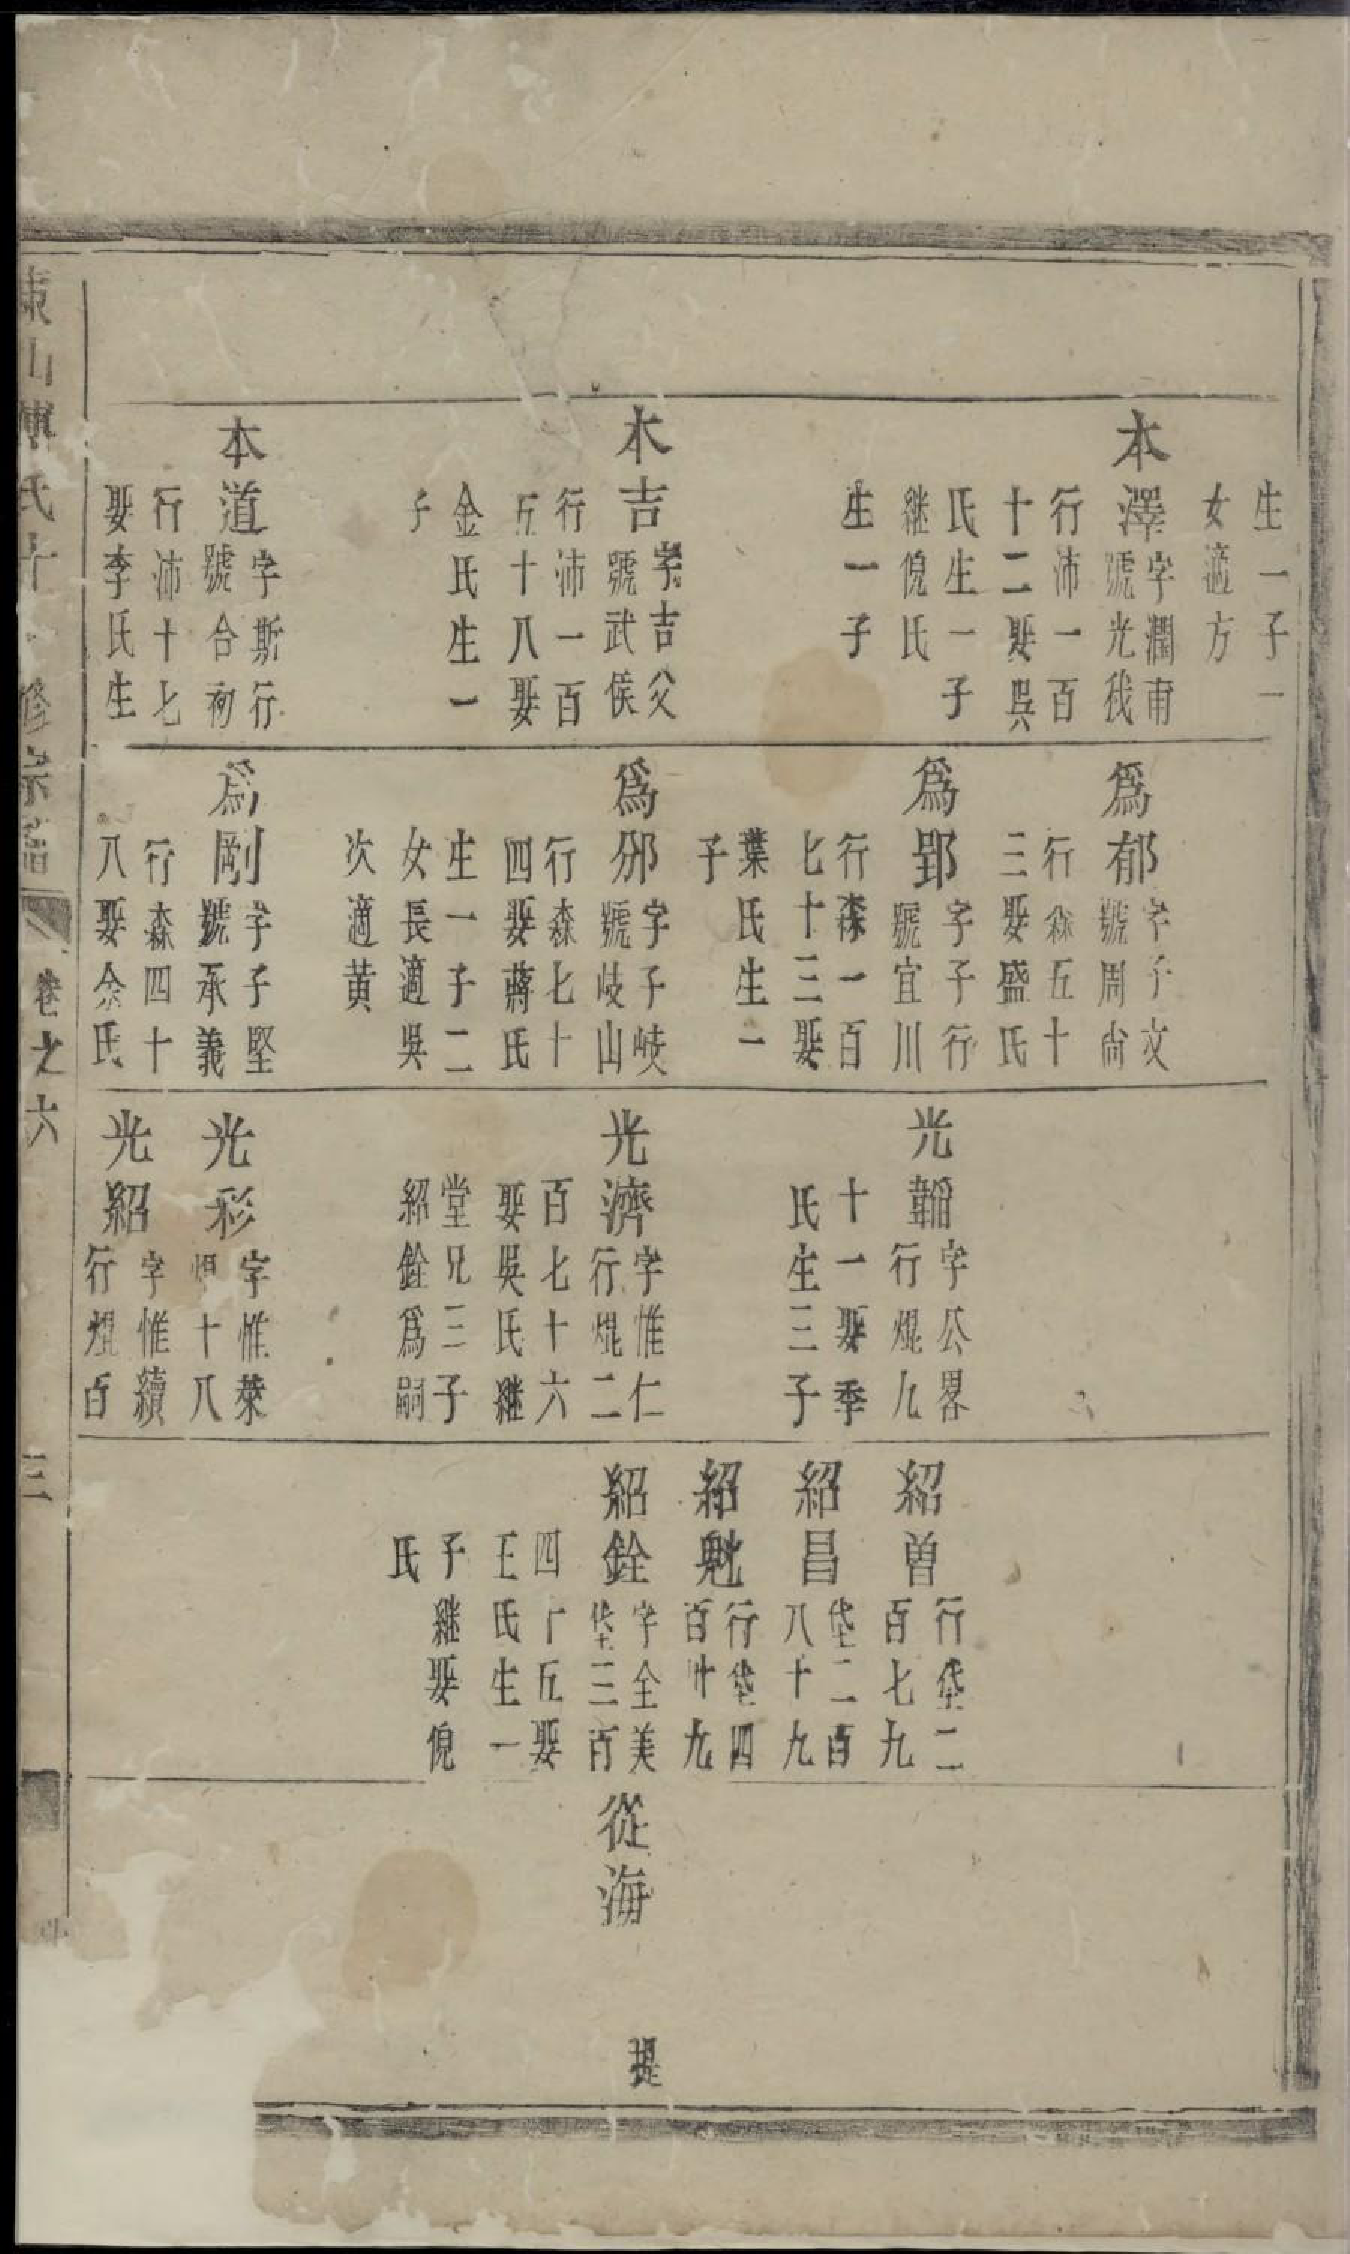 生一子一
女適方
本澤字潤甫
號光我
行沛一百
十二娶吳
氏生一子
継倪氏
生一子
本吉字吉父
號武侯
行沛一百
五十八娶
金氏生一
子
本道字斯行
號合初
行沛十七
娶李氏生
爲郁字子文
號周尚
行森五十
三娶盛氏
爲郢字子行
號宜川
行森一百
七十三娶
葉氏生一
子
爲邠字子岐
號岐山
行森七十
四娶蔣氏
生一子二
女長適吳
次適黄
爲剛字子堅
號承義
行森四十
八娶余氏
光韜字公畧
行焜九
十一娶季
氏生三子
光濟字惟仁
行焜二
百七十六
娶吳氏継
堂兄三子
紹銓爲嗣
光彩字惟榮
焜十八
光紹字惟續
行焜百
紹曽行垡二
百七九
紹昌垡二百
八十九
紹魁行垡四
百卄九
紹銓字全美
垡三百
四十五娶
王氏生一
子継娶倪
氏
從海
提
東山傅氏十修宗譜
卷之六
三